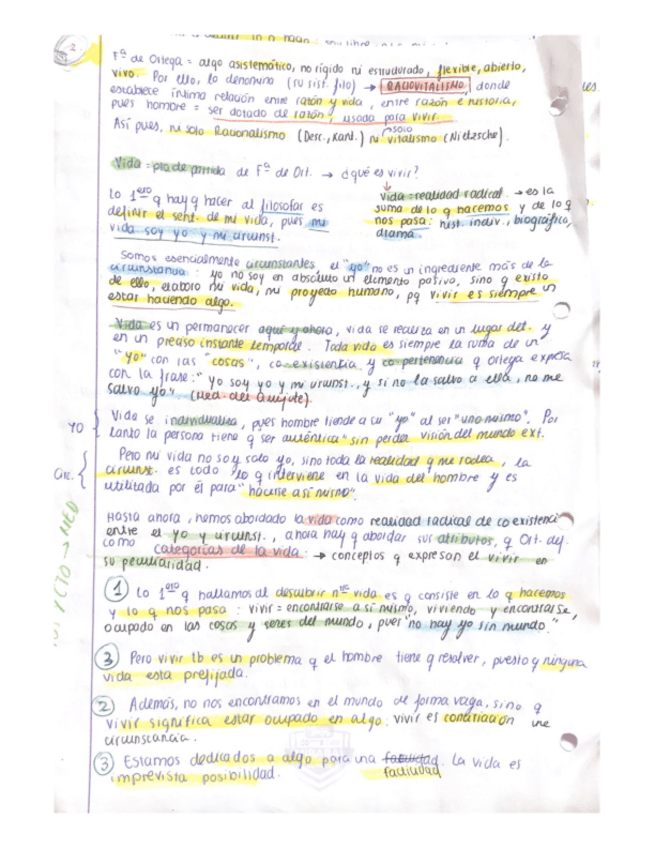 2
Fª de Ortega = algo asistemático, no rígido ni estructurado, flexible, abierto,
vivo. Por ello, lo denomina (su sist. filo) → RACIOVITALISMO, donde
establece íntima relación entre razón y vida, entre razón e historia,
pues hombre = ser dotado de razón, usada para vivir.
solo
Así pues, ni solo Racionalismo (Desc., Kant.) ni vitalismo (Nietzsche).
Vida = pto de partida de Fª de Ort. → ¿qué es vivir?
Lo 1ero q hay q hacer al filosofar es
definir el sent. de mi vida, pues mi
vida soy yo y mi circunst.
Vida = realidad radical. → es la
suma de lo q hacemos y de lo q
nos pasa: hist. indiv., biográfica,
drama.
Somos esencialmente circunstantes, el "yo" no es un ingrediente más de la
circunstancia: yo no soy en absoluto un elemento pasivo, sino q existo
de ello, elaboro mi vida, mi proyecto humano, pq vivir es siempre un
estar haciendo algo.
Vida es un permanecer aquí y ahora, vida se realiza en un lugar det. y
en un preciso instante temporal. Toda vida es siempre la suma de un
"yo" con las "cosas", co-existencia y co-pertenencia q Ortega expresa
con la frase: "Yo soy yo y mi circunst., y si no la salvo a ella, no me
salvo yo" (Med. del Quijote).
YO
Vida se individualiza, pues hombre tiende a su "yo" al ser "uno mismo". Por
tanto la persona tiene q ser auténtica "sin perder visión del mundo ext.
Circ.
Pero mi vida no soy solo yo, sino toda la realidad q me rodea, la
circunst. es todo lo q interviene en la vida del hombre y es
utilizada por él para "hacerse así mismo".
Hasta ahora, hemos abordado la vida como realidad radical de coexistenci
entre el yo y circunst., ahora hay q abordar sus atributos, q Ort. def.
como categorías de la vida: → conceptos q expresan el vivir en
su peculiaridad.
1 Lo 1ero q hallamos al descubrir ntra vida es q consiste en lo q hacemos
y lo q nos pasa: vivir = encontrarse a sí mismo, viviendo y encontrarse,
ocupado en las cosas y seres del mundo, pues "no hay yo sin mundo."
3 Pero vivir tb es un problema q el hombre tiene q resolver, puesto q ninguna
vida esta prefijada.
2 Además, no nos encontramos en el mundo de forma vaga, sino q
vivir significa estar ocupado en algo: vivir es
circunstancia.
3 Estamos dedicados a algo para una facilidad. La vida es
facticidad
imprevista posibilidad.